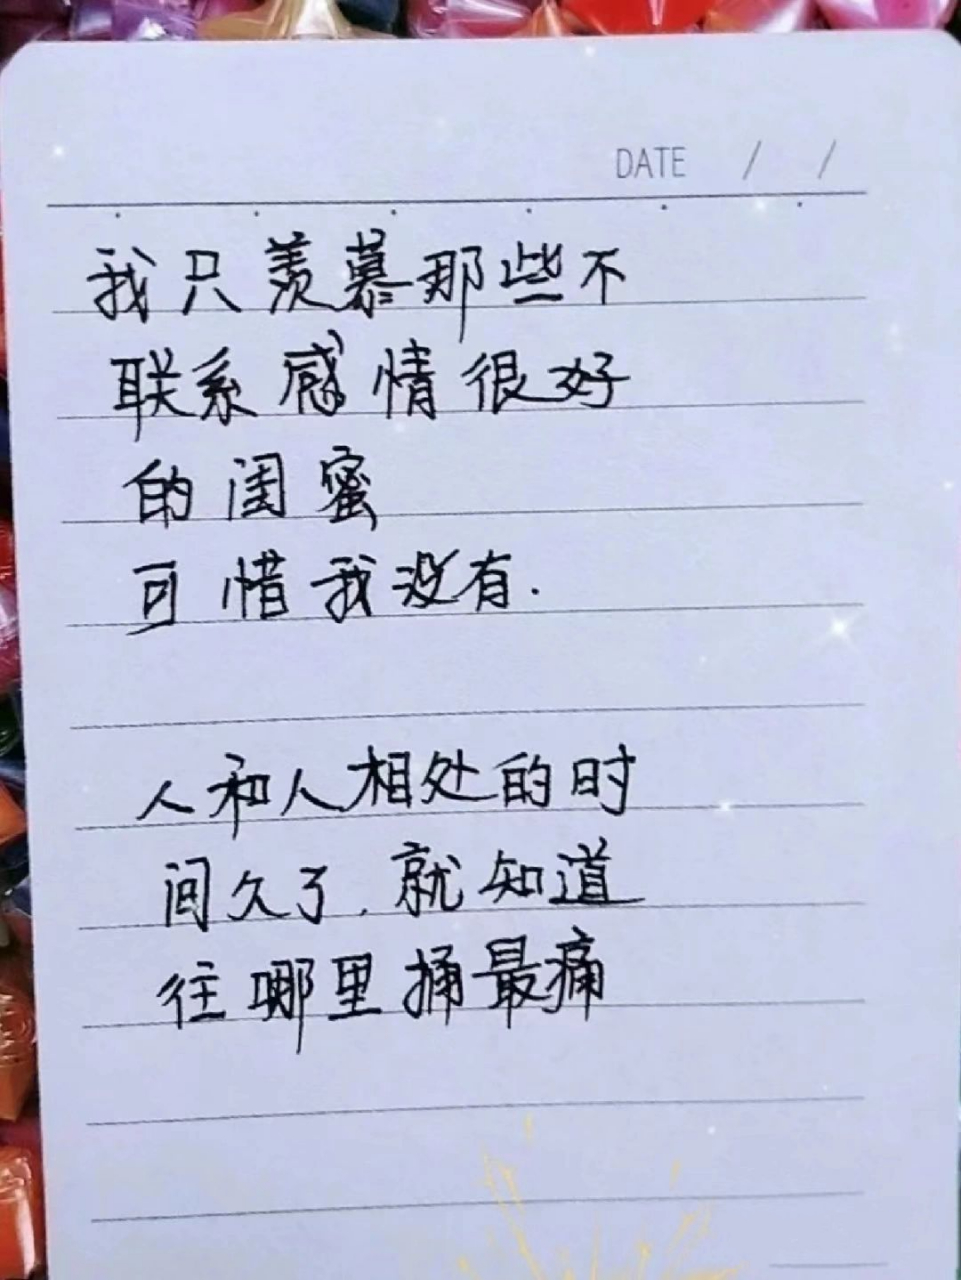 DATE / /
我只羡慕那些不
联系感情很好
的闺蜜
可惜我没有.
人和人相处的时
间久了.就知道
往哪里捅最痛